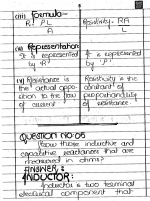 (iii) Formula-
R: PL Resistivity- RA
A L
(iv) Representation:
It is represented It is represented
by "R" by "P"
(v) Resistance is Resistivity is the
the actual oppo- constant of
sition to the flow
of current of resistance.
QUESTION NO:05
How those inductive and
capacitive reactances that are
measured in ohms?
ANSWER:
INDUCTOR:
Inductor is two terminal
electrical component that